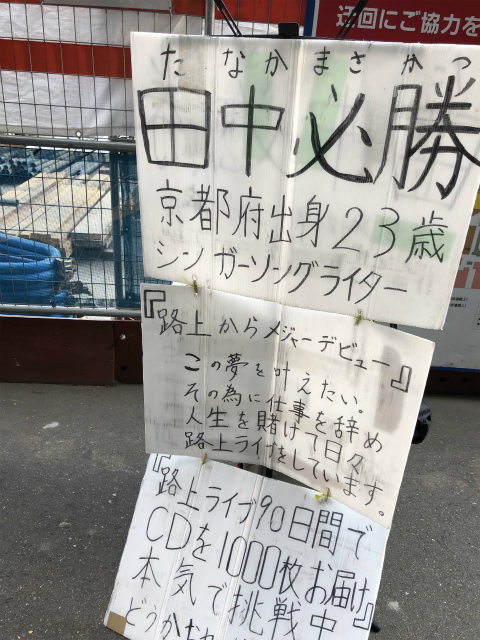 迂回にご協力を
たなかまさかつ
田中必勝
京都府出身23歳
シンガーソングライター
『路上からメジャーデビュー』
この夢を叶えたい。
その為に仕事を辞め
人生を賭けて日々
路上ライブをしています。
『路上ライブ90日間で
CDを1000枚お届け』
本気で挑戦中